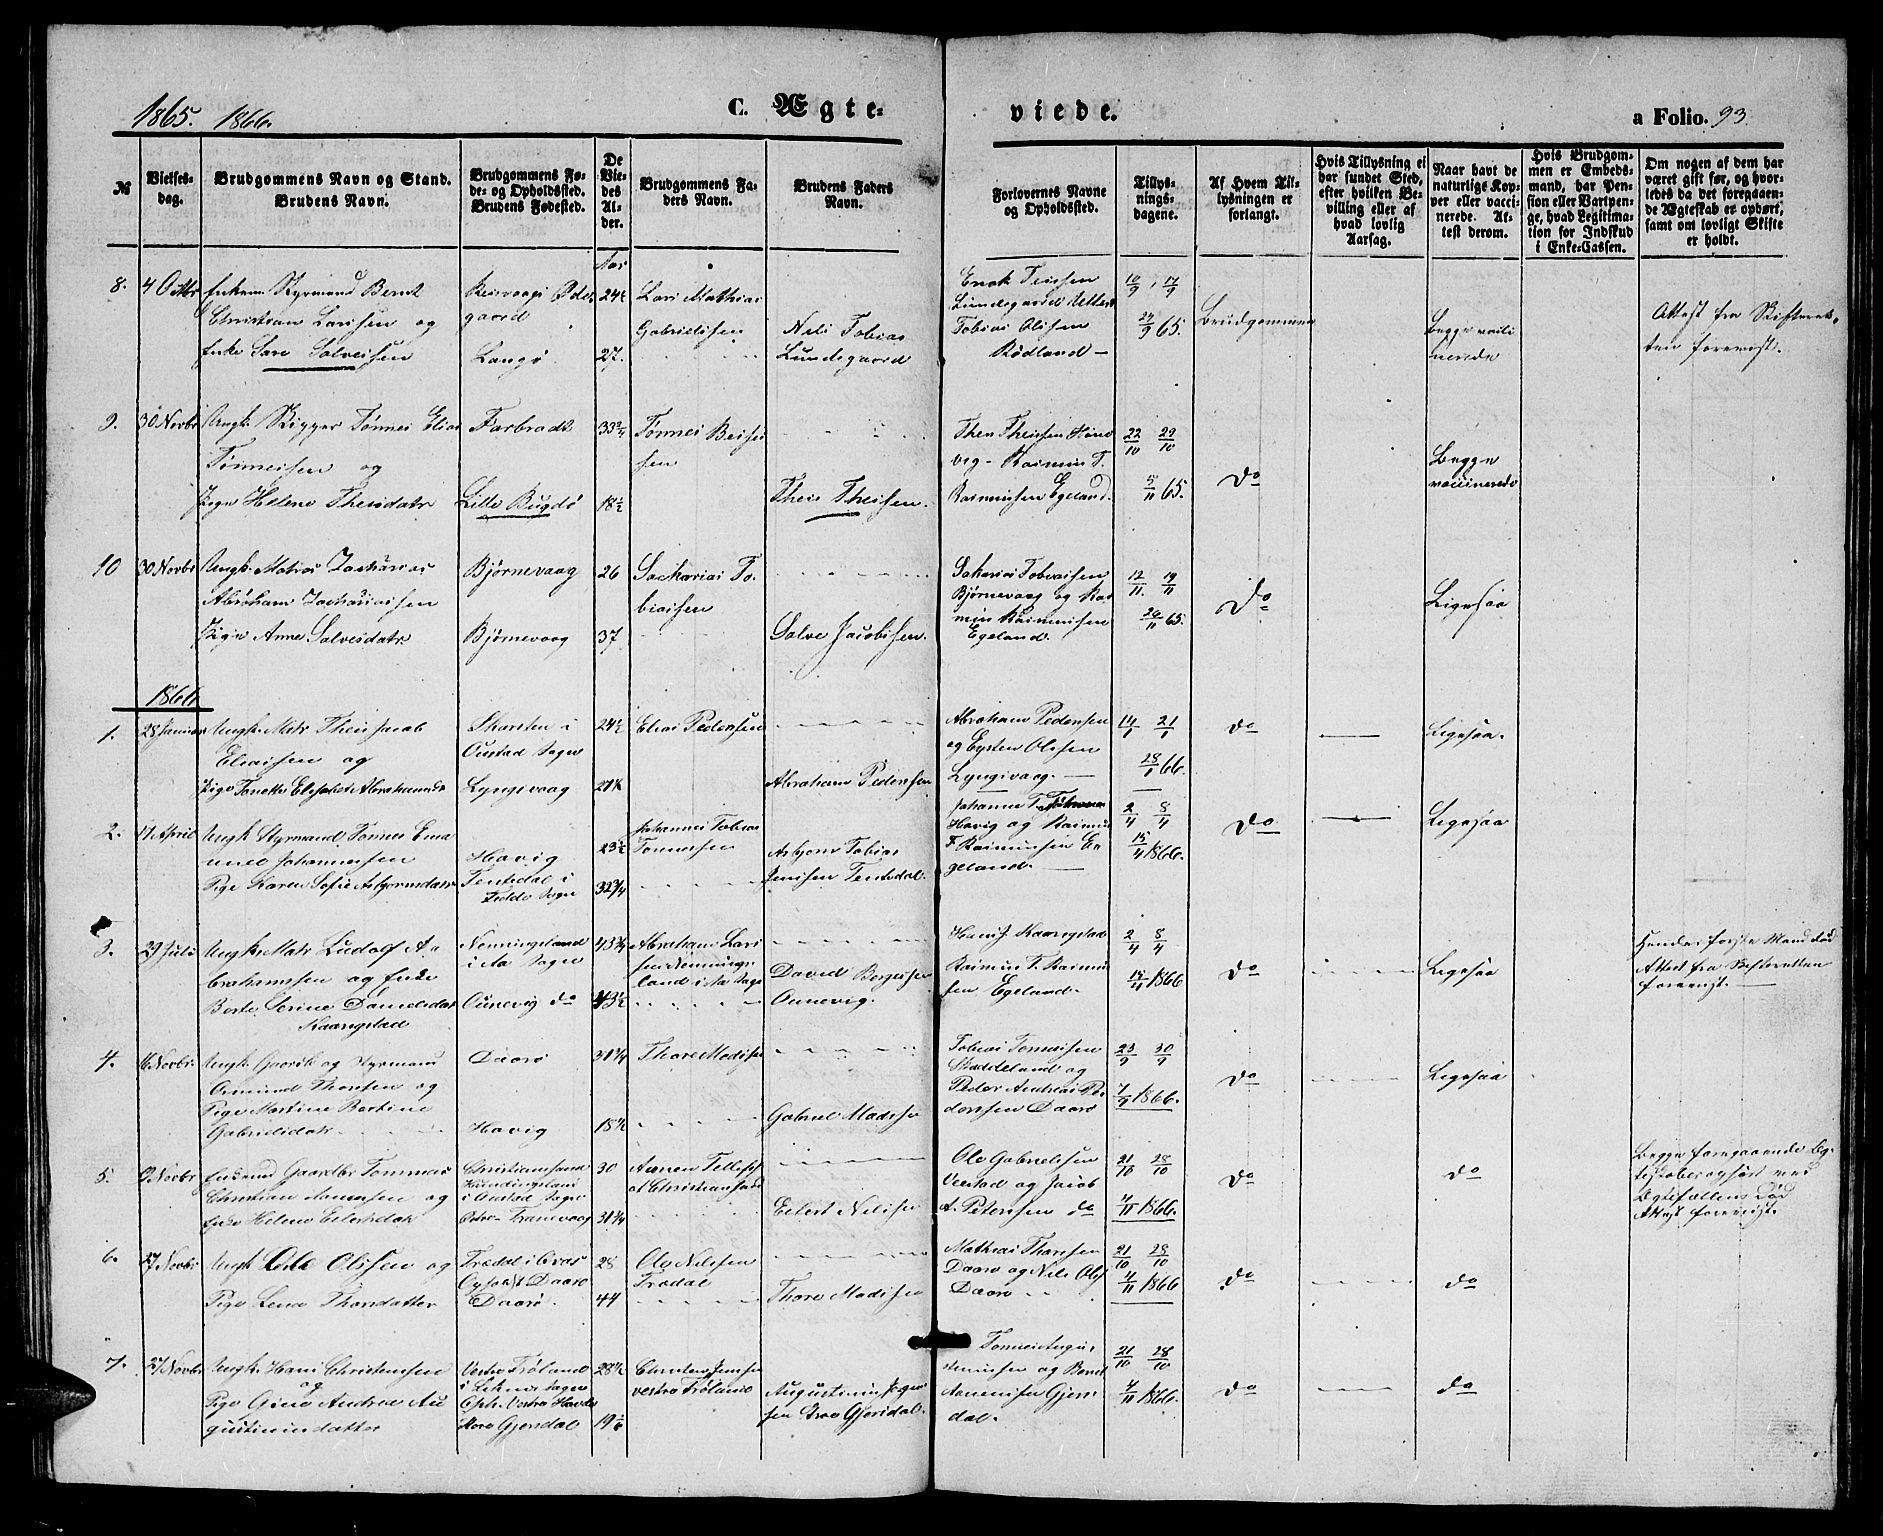 1865. 1866.
C. Ægte-
viede.
a Folio. 93.
№
Vielses-
dag.
Brudgommens Navn og Stand.
Brudens Navn.
Brudgommens Fø-
de- og Opholdssted.
Brudens Fødested.
De
Vie-
des
Al-
der.
Brudgommens Fa-
ders Navn.
Brudens Faders
Navn.
Forlovernes Navne
og Opholdssted.
Tillys-
nings-
dagene.
Af Hvem Til-
lysningen er
forlangt.
Hvis Tillysning ei
har fundet Sted,
efter hvilken Be-
villing eller af
hvad lovlig
Aarsag.
Naar havt de
naturlige Kop-
per eller vacci-
nerede. At-
test derom.
Hvis Brudgom-
men er Embeds-
mand, har Pen-
sion eller Vartpen-
ge, hvad Legitima-
tion for Indskud
i Enke-Cassen.
Om nogen af dem har
været gift før, og hvor-
ledes da det foregaaen-
de Ægteskab er ophørt,
samt om lovligt Skifte
er holdt.
Aar
8. 4 Octbr Enkem. Styrmand Bernt
Christian Larssen og
Enke Sare Salvesen
gaard
Langø
24½
27.
Lars Mathias
Gabrielsen
Nils Tobias
Lundegaard
Enok Teissen
Lundegaard
Tobias Olssen
Rødland —
10/9, 17/9
24/9 65.
Brudgommen
Begge vacci
nerede
Attest fra Skifteret-
ten foreviist.
9. 30 Novbr Ungk. Skipper Tønnes Elias
Tønnessen og
Pige Helene Theisdatr
Farbrodt
Lille Bugdø
33¾
18½
Tønnes Beisse
sen
Theis Theissen.
Theis Theissen
Rasmus T.
Rasmussen Egeland.
22/10 29/10
5/11 65.
Do
Begge
vaccinerede
10 30 Novbr Ungk. Matros Zacharias
Abraham Zachariassen
Pige Anne Salvesdatr
Bjørnevaag
Bjørnevaag
26
37
Sacharias To-
biassen
Salve Jacobssen.
Sakarias Tobiassen
Bjørnevaag og Ras-
mus Rasmussen
Egeland.
12/11. 19/11
26/11 65.
Do
Ligesaa
1866
1. 28 Januar Ungk. Matr Theis Jacob
Eliassen og
Pige Tonette Elisabet Abrahamsdr
Skarsten i
Oustad Sogn
Lyngsvaag
24½
21½
Elias Pedersen
Abraham Pedersen
Abraham Pedersen
og Eysten Olssen
Lyngsvaag. —
14/1 21/1
28/1 66.
do
Ligesaa.
2. 17 April Ungk Styrmand Tønnes Ema
nuel Johannessen
Pige Karen Sofie Asbjørnsdatr
Havig
Tentsdal i
Fedde Sogn
23½
32¾
Johannes Tobias
Tønnessen
Asbjørn Tobias
Jenssen Tentsdal.
Johannes T.
Havig og Rasmus
T Rasmussen E-
geland.
2/4 8/4
15/4 1866.
Do
Ligesaa
3. 29 Juli Ungk. Matr Ludolf A-
brahamsen og Enke
Berte Serine Danielsdatr
Kaangstad
Nenningsland
i Aa Sogn
Ounevig do
43¾
43½
Abraham Lars
sen Nennings-
land i Aa Sogn
David Bergersen
Ounevig.
Hans Kaangstad
Rasmus T. Rasmus
sen Egeland.
2/4 8/4
15/4 1866
Do
Ligesaa
Hendes første Mand død
Attest fra Skifteretten
foreviist. —
4. 16 Novbr. Ungk Gaardb og Styrmand
Osmund Thorsen og
Pige Martine Bertine
Gabrielsdatr
Daarø
Havig
31¾
18½
Thore Madssen
Gabriel Madssen
Tobias Tønnessen
Staddeland og
Peder Andreas Pe-
derssen Daarø
23/9 30/9
7/9 1866.
Do
Ligesaa
5. 9 Novbr Enkemd Gaardbr Tommas
Christian Aanensen og
Enke Helene Eilertsdatr
Christiansund
i Oustad Sogn
Tranevaag
30
31¾
Aanen Tellefs
af Christiansand
Eilert Nilssen
Ole Gabrielssen
Veestad og Jacob
A. Peterssen do
21/10 28/10
4/11 1866.
Do
do
Begge foregaaende Æg-
teskaber ophørt ved
Ægtefællens Død
Attest foreviist.
6. 27 Novbr Ungk Ole Olssen og
Pige Lene Thorsdatter
Trædal i Qvas
Opholdst Daarø
Daarø
28
44
Ole Nilssen
Trædal
Thore Madssen
Mathias Thorssen
Daarø og Nils Ols
Daarø
21/10 28/10
4/11 1866
do
do
7. 27 Novbr Ungk Hans Christenssen
og
Pige Gine Andrea Au
gustinusdatter
Vestre Trøland
i Lekne Sogn
Oph. Vestre Havde
Store Gjersdal
28½
19½
Christen Jenssen
vestre Trøland
Augustinus Jger
sen Store Gjersdal.
Tønnes Augu-
stinussen og Bernt
Aanenssen Gjers
dal.
21/10 28/10
4/11 1866.
do
do